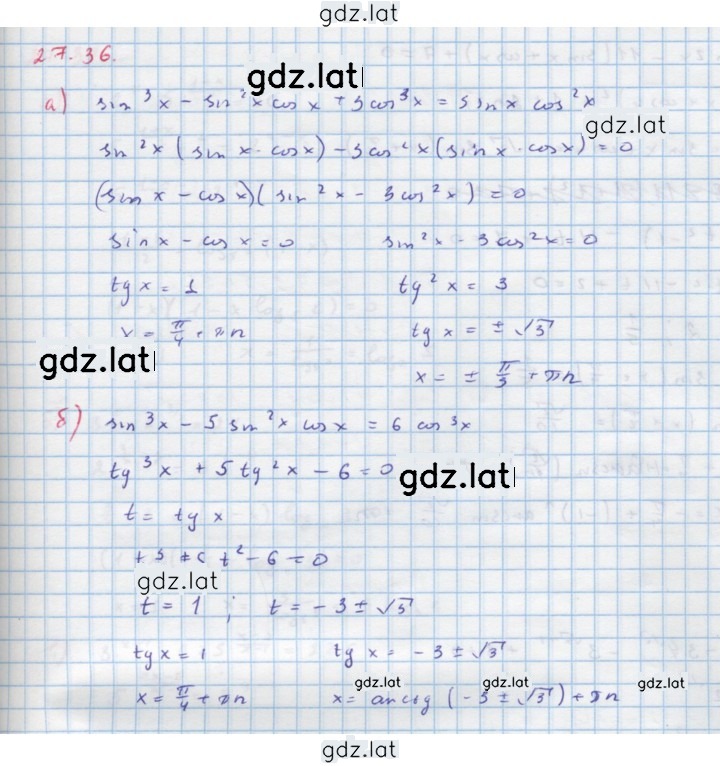 gdz.lat
27.36.
gdz.lat
а) sin³x - sin²x cos x + 3cos³x = 3sin x cos²x
gdz.lat
sin²x (sin x - cos x) - 3cos²x (sin x - cos x) = 0
(sin x - cos x)(sin²x - 3cos²x) = 0
sin x - cos x = 0 sin²x - 3cos²x = 0
tg x = 1 tg²x = 3
x = π/4 + πn tg x = ± √3
gdz.lat
x = ± π/3 + πn
б) sin³x - 5 sin²x cos x = 6 cos³x
tg³x + 5tg²x - 6 = 0
gdz.lat
t = tg x
t² - 6 = 0
gdz.lat
t = 1 ; t = -3 ± √3
tg x = 1 tg x = -3 ± √3
gdz.lat gdz.lat gdz.lat
x = π/4 + πn x = arctg (-3 ± √3) + πn
gdz.lat